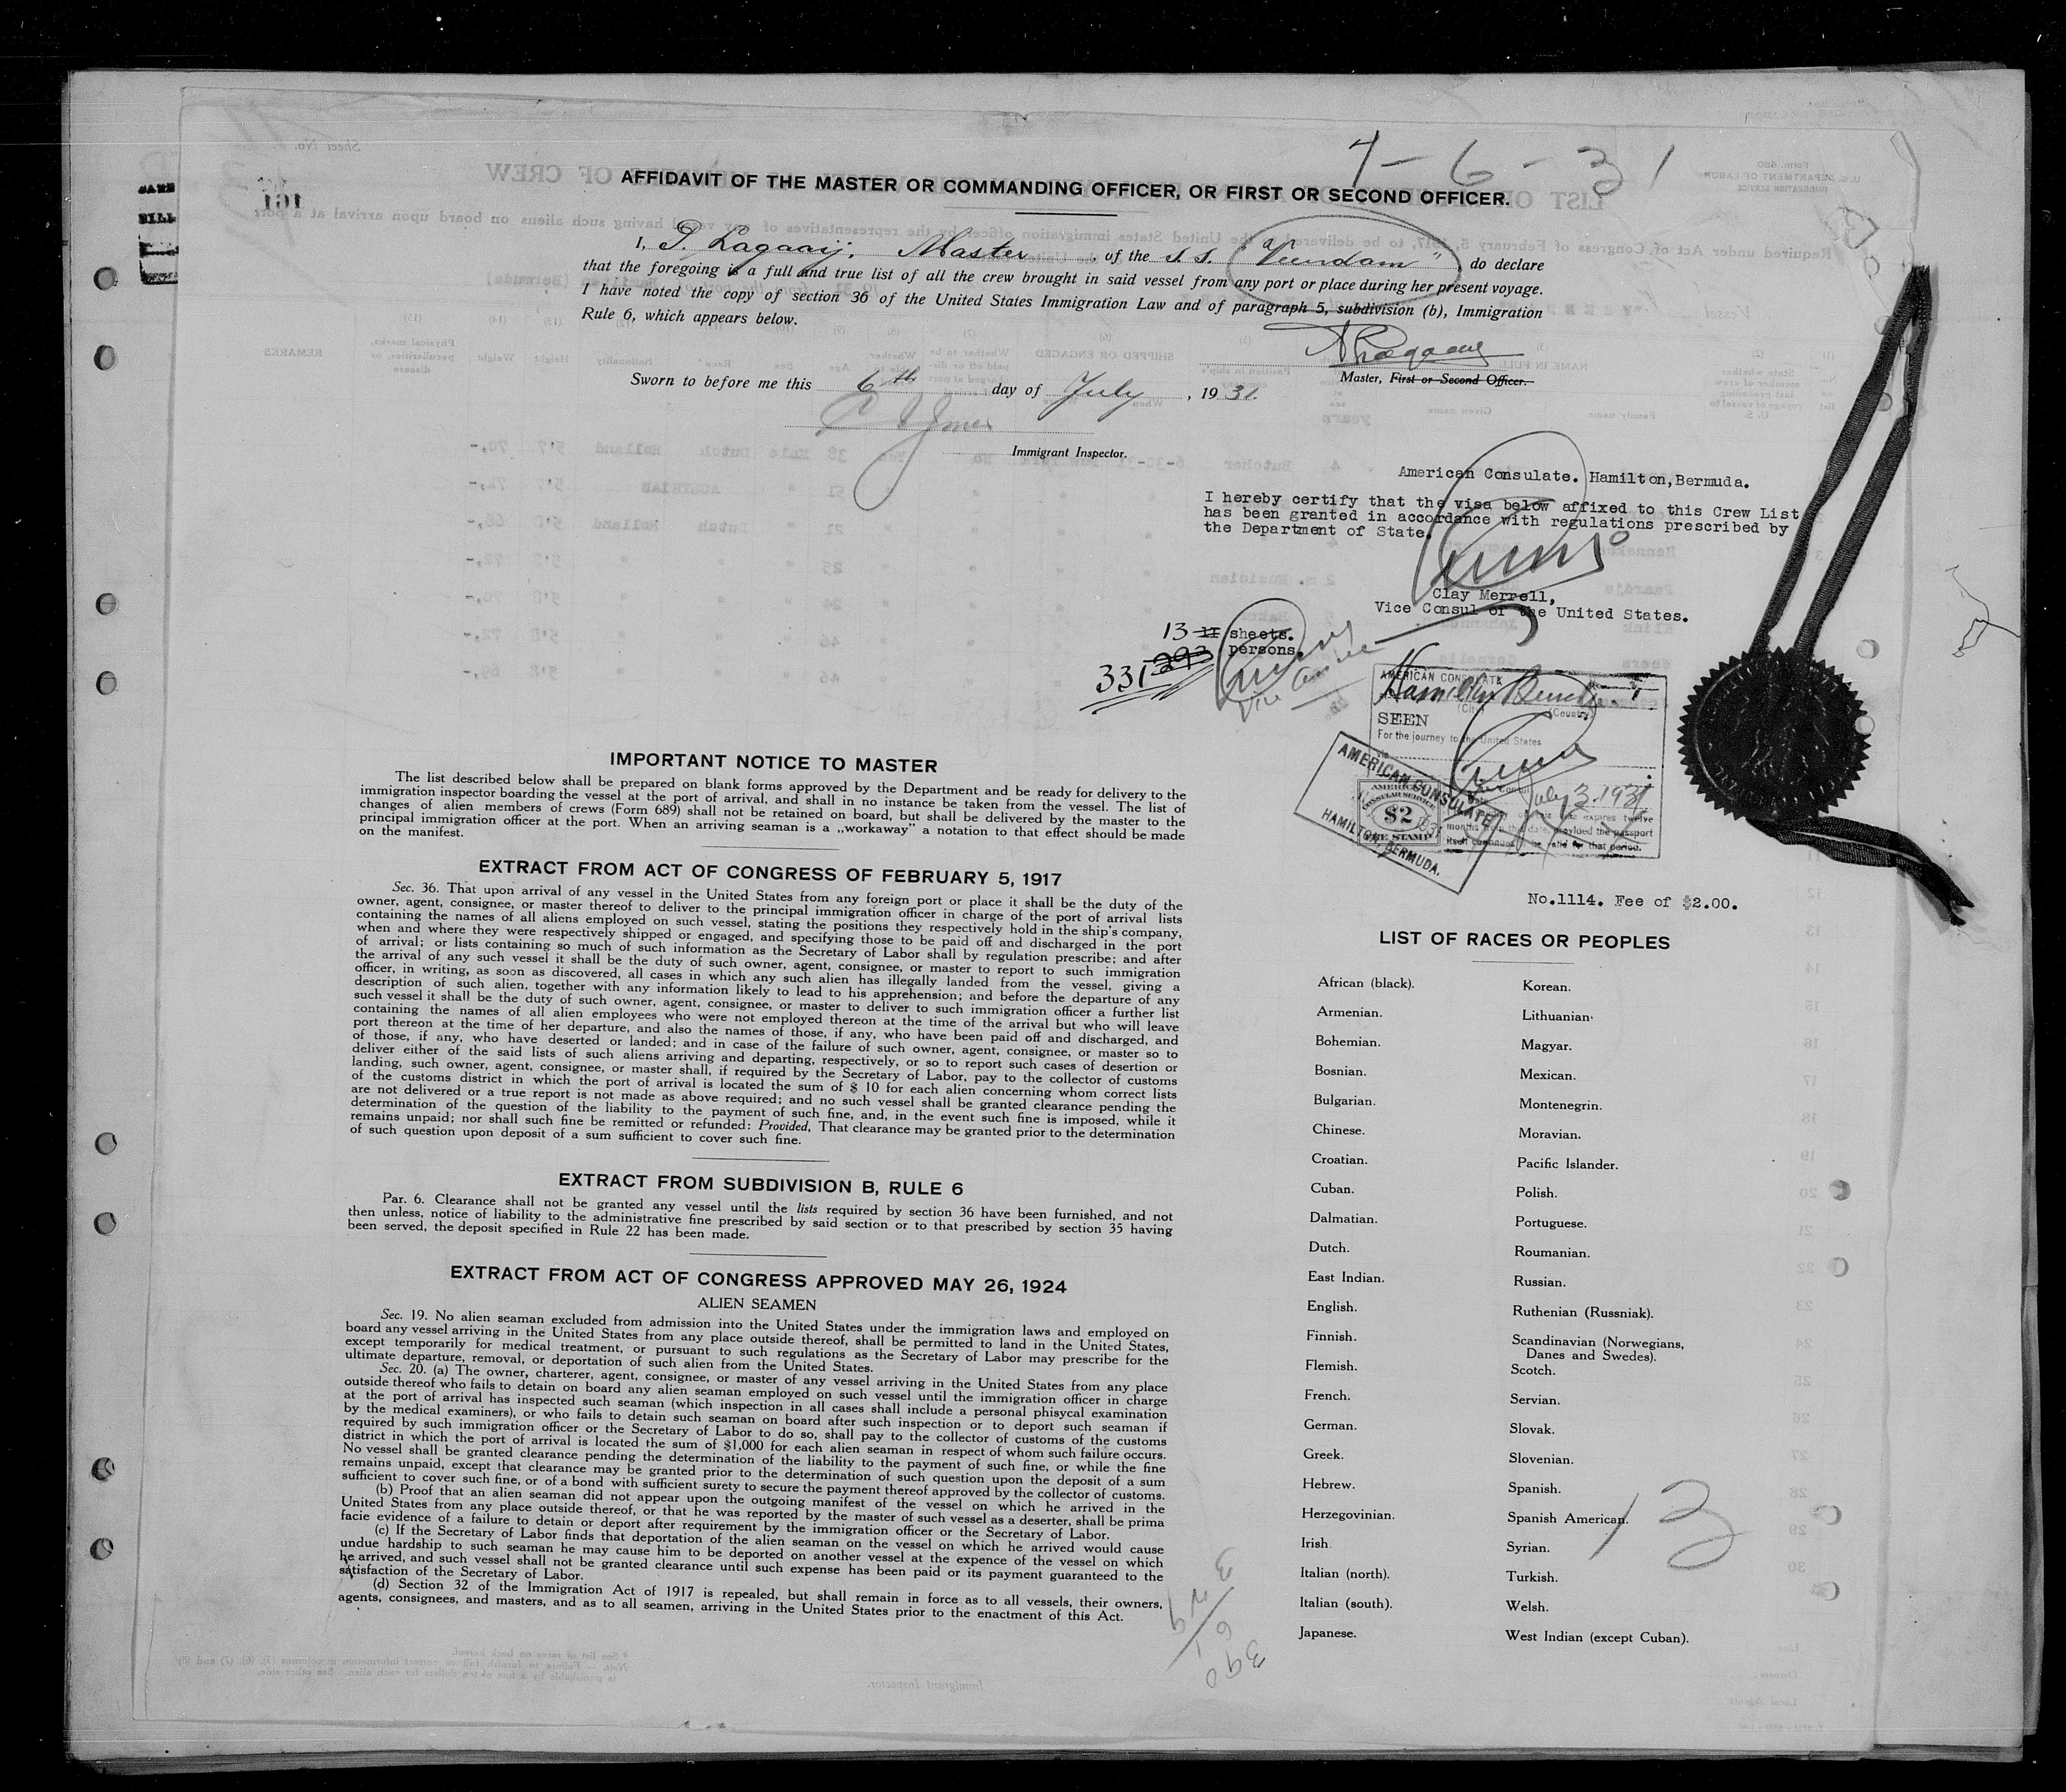 7-6-31
AFFIDAVIT OF THE MASTER OR COMMANDING OFFICER, OR FIRST OR SECOND OFFICER.
I, P. Lagaaij, Master, of the S.S. "Veendam", do declare
that the foregoing is a full and true list of all the crew brought in said vessel from any port or place during her present voyage.
I have noted the copy of section 36 of the United States Immigration Law and of paragraph 5, subdivision (b), Immigration
Rule 6, which appears below.
Master, First or Second Officer.
Sworn to before me this 6th day of July, 1931.
Immigrant Inspector.
American Consulate. Hamilton,Bermuda.
I hereby certify that the visa below affixed to this Crew List
has been granted in accordance with regulations prescribed by
the Department of State.
Clay Merrell,
Vice Consul of the United States.
13 11 sheets.
331 293 persons.
Vice Consul
AMERICAN CONSULATE
Hamilton Bermuda
(City) (Country)
SEEN
For the journey to the United States
July 3. 1931
months from this date, provided the passport
itself continues to be valid for that period.
AMERICAN CONSULATE
HAMILTON, BERMUDA.
AMERICAN
CONSULAR SERVICE
$2
FEE STAMP
No.1114. Fee of $2.00.
IMPORTANT NOTICE TO MASTER
The list described below shall be prepared on blank forms approved by the Department and be ready for delivery to the
immigration inspector boarding the vessel at the port of arrival, and shall in no instance be taken from the vessel. The list of
changes of alien members of crews (Form 689) shall not be retained on board, but shall be delivered by the master to the
principal immigration officer at the port. When an arriving seaman is a ,,workaway" a notation to that effect should be made
on the manifest.
EXTRACT FROM ACT OF CONGRESS OF FEBRUARY 5, 1917
Sec. 36. That upon arrival of any vessel in the United States from any foreign port or place it shall be the duty of the
owner, agent, consignee, or master thereof to deliver to the principal immigration officer in charge of the port of arrival lists
containing the names of all aliens employed on such vessel, stating the positions they respectively hold in the ship's company,
when and where they were respectively shipped or engaged, and specifying those to be paid off and discharged in the port
of arrival; or lists containing so much of such information as the Secretary of Labor shall by regulation prescribe; and after
the arrival of any such vessel it shall be the duty of such owner, agent, consignee, or master to report to such immigration
officer, in writing, as soon as discovered, all cases in which any such alien has illegally landed from the vessel, giving a
description of such alien, together with any information likely to lead to his apprehension; and before the departure of any
such vessel it shall be the duty of such owner, agent, consignee, or master to deliver to such immigration officer a further list
containing the names of all alien employees who were not employed thereon at the time of the arrival but who will leave
port thereon at the time of her departure, and also the names of those, if any, who have been paid off and discharged, and
of those, if any, who have deserted or landed; and in case of the failure of such owner, agent, consignee, or master so to
deliver either of the said lists of such aliens arriving and departing, respectively, or so to report such cases of desertion or
landing, such owner, agent, consignee, or master shall, if required by the Secretary of Labor, pay to the collector of customs
of the customs district in which the port of arrival is located the sum of $ 10 for each alien concerning whom correct lists
are not delivered or a true report is not made as above required; and no such vessel shall be granted clearance pending the
determination of the question of the liability to the payment of such fine, and, in the event such fine is imposed, while it
remains unpaid; nor shall such fine be remitted or refunded: Provided, That clearance may be granted prior to the determination
of such question upon deposit of a sum sufficient to cover such fine.
EXTRACT FROM SUBDIVISION B, RULE 6
Par. 6. Clearance shall not be granted any vessel until the lists required by section 36 have been furnished, and not
then unless, notice of liability to the administrative fine prescribed by said section or to that prescribed by section 35 having
been served, the deposit specified in Rule 22 has been made.
EXTRACT FROM ACT OF CONGRESS APPROVED MAY 26, 1924
ALIEN SEAMEN
Sec. 19. No alien seaman excluded from admission into the United States under the immigration laws and employed on
board any vessel arriving in the United States from any place outside thereof, shall be permitted to land in the United States,
except temporarily for medical treatment, or pursuant to such regulations as the Secretary of Labor may prescribe for the
ultimate departure, removal, or deportation of such alien from the United States.
Sec. 20. (a) The owner, charterer, agent, consignee, or master of any vessel arriving in the United States from any place
outside thereof who fails to detain on board any alien seaman employed on such vessel until the immigration officer in charge
at the port of arrival has inspected such seaman (which inspection in all cases shall include a personal phisycal examination
by the medical examiners), or who fails to detain such seaman on board after such inspection or to deport such seaman if
required by such immigration officer or the Secretary of Labor to do so, shall pay to the collector of customs of the customs
district in which the port of arrival is located the sum of $1,000 for each alien seaman in respect of whom such failure occurs.
No vessel shall be granted clearance pending the determination of the liability to the payment of such fine, or while the fine
remains unpaid, except that clearance may be granted prior to the determination of such question upon the deposit of a sum
sufficient to cover such fine, or of a bond with sufficient surety to secure the payment thereof approved by the collector of customs.
(b) Proof that an alien seaman did not appear upon the outgoing manifest of the vessel on which he arrived in the
United States from any place outside thereof, or that he was reported by the master of such vessel as a deserter, shall be prima
facie evidence of a failure to detain or deport after requirement by the immigration officer or the Secretary of Labor.
(c) If the Secretary of Labor finds that deportation of the alien seaman on the vessel on which he arrived would cause
undue hardship to such seaman he may cause him to be deported on another vessel at the expence of the vessel on which
he arrived, and such vessel shall not be granted clearance until such expense has been paid or its payment guaranteed to the
satisfaction of the Secretary of Labor.
(d) Section 32 of the Immigration Act of 1917 is repealed, but shall remain in force as to all vessels, their owners,
agents, consignees, and masters, and as to all seamen, arriving in the United States prior to the enactment of this Act.
LIST OF RACES OR PEOPLES
African (black).
Armenian.
Bohemian.
Bosnian.
Bulgarian.
Chinese.
Croatian.
Cuban.
Dalmatian.
Dutch.
East Indian.
English.
Finnish.
Flemish.
French.
German.
Greek.
Hebrew.
Herzegovinian.
Irish
Italian (north).
Italian (south).
Japanese.
Korean.
Lithuanian.
Magyar.
Mexican.
Montenegrin.
Moravian.
Pacific Islander.
Polish.
Portuguese.
Roumanian.
Russian.
Ruthenian (Russniak).
Scandinavian (Norwegians,
Danes and Swedes).
Scotch.
Servian.
Slovak.
Slovenian.
Spanish.
Spanish American.
Syrian.
Turkish.
Welsh.
West Indian (except Cuban).
13